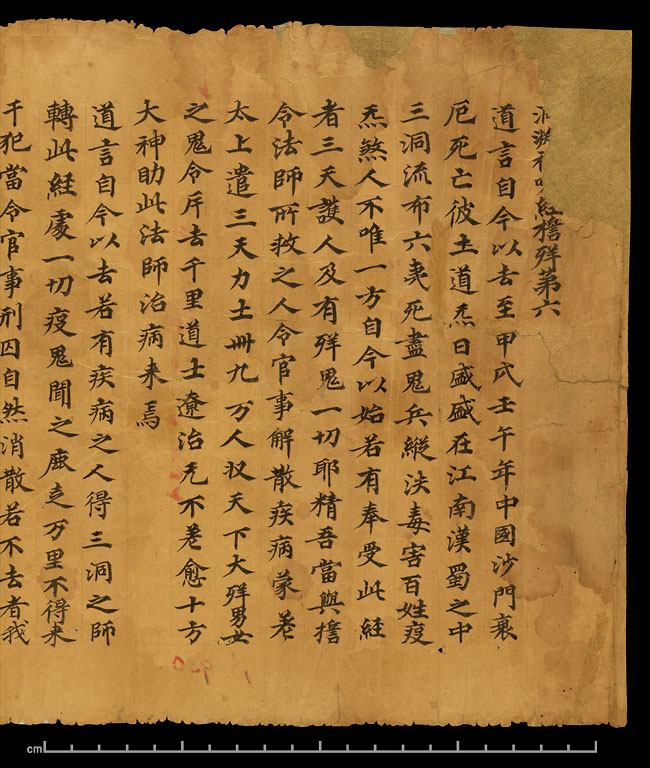 経擔殃第六
道言自今以去至甲戌壬午年中國沙門衰
厄死亡彼土道炁日盛盛在江南漢蜀之中
三洞流布六夷死盡鬼兵縱泆毒害百姓疫
炁煞人不唯一方自今以始若有奉受此経
者三天護人及有殃鬼一切耶精吾當與擔
令法師所救之人令官事解散疾病蒙差
太上遣三天力士卌九万人収天下大殃男女
之鬼令斥去千里道士療治无不差愈十方
大神助此法師治病来焉
道言自今以去若有疾病之人得三洞之師
轉此経處一切疫鬼聞之鹿走万里不得来
干犯當令官事刑囚自然消散若不去者我
cm